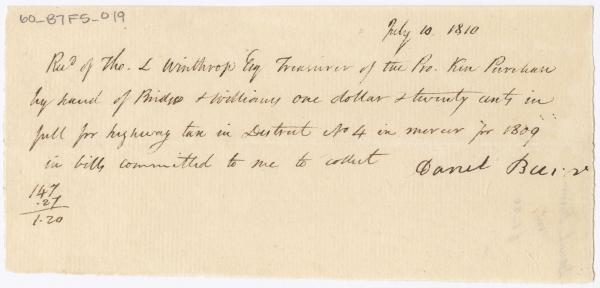 60-B7F5-019
July 10 1810
Recd of Tho. L Winthrop Esq Treasurer of the Pro. Ken Purchase
by hand of Bridge & Williams one dollar & twenty cents in
full for highway tax in District No 4 in mercer for 1809
in bills committed to me to collect Daniel
147
.27
1.20